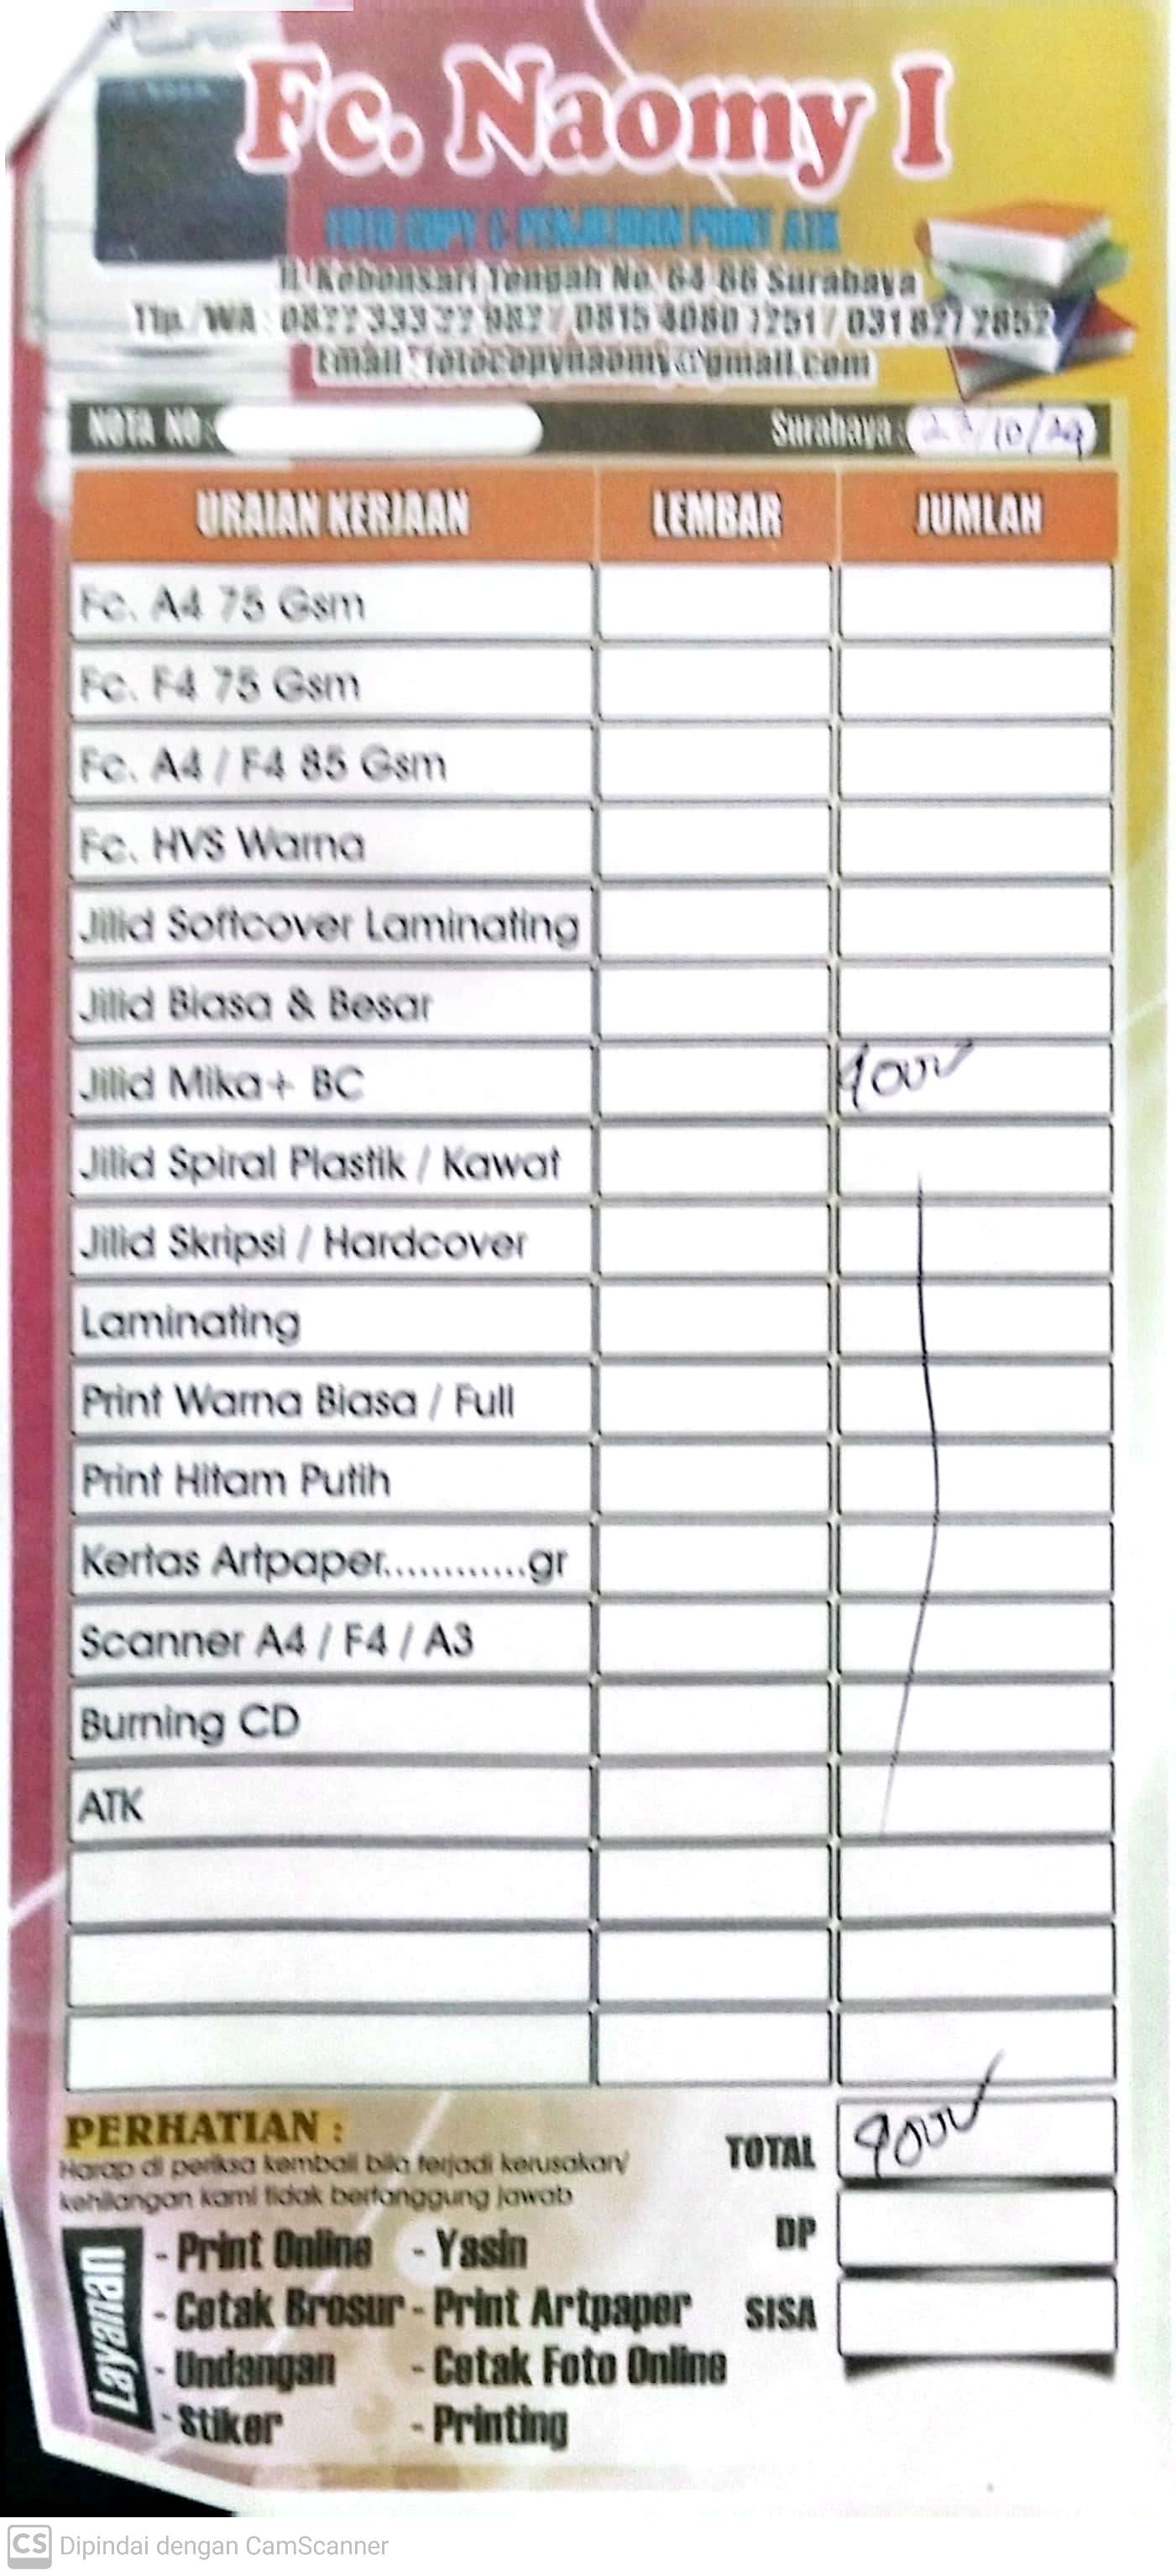 Fc. Naomy I
FOTO COPY & PENJILIDAN PRINT ATK
Jl. Kebonsari Tengah No. 64-66 Surabaya
Tlp. / WA : 0822 333 22 982 / 0815 4080 1251 / 031 827 2852
Email : fotocopynaomy@gmail.com
NOTA NO : Surabaya : /10/24
URAIAN KERJAAN LEMBAR JUMLAH
Fc. A4 75 Gsm
Fc. F4 75 Gsm
Fc. A4 / F4 85 Gsm
Fc. HVS Warna
Jilid Softcover Laminating
Jilid Biasa & Besar
Jilid Mika+ BC 9000
Jilid Spiral Plastik / Kawat
Jilid Skripsi / Hardcover
Laminating
Print Warna Biasa / Full
Print Hitam Putih
Kertas Artpaper............gr
Scanner A4 / F4 / A3
Burning CD
ATK
PERHATIAN :
Harap di periksa kembali bila terjadi kerusakan/
kehilangan kami tidak bertanggung jawab
TOTAL 9000
DP
SISA
Layanan
- Print Online - Yasin
- Cetak Brosur - Print Artpaper
- Undangan - Cetak Foto Online
- Stiker - Printing
CS Dipindai dengan CamScanner